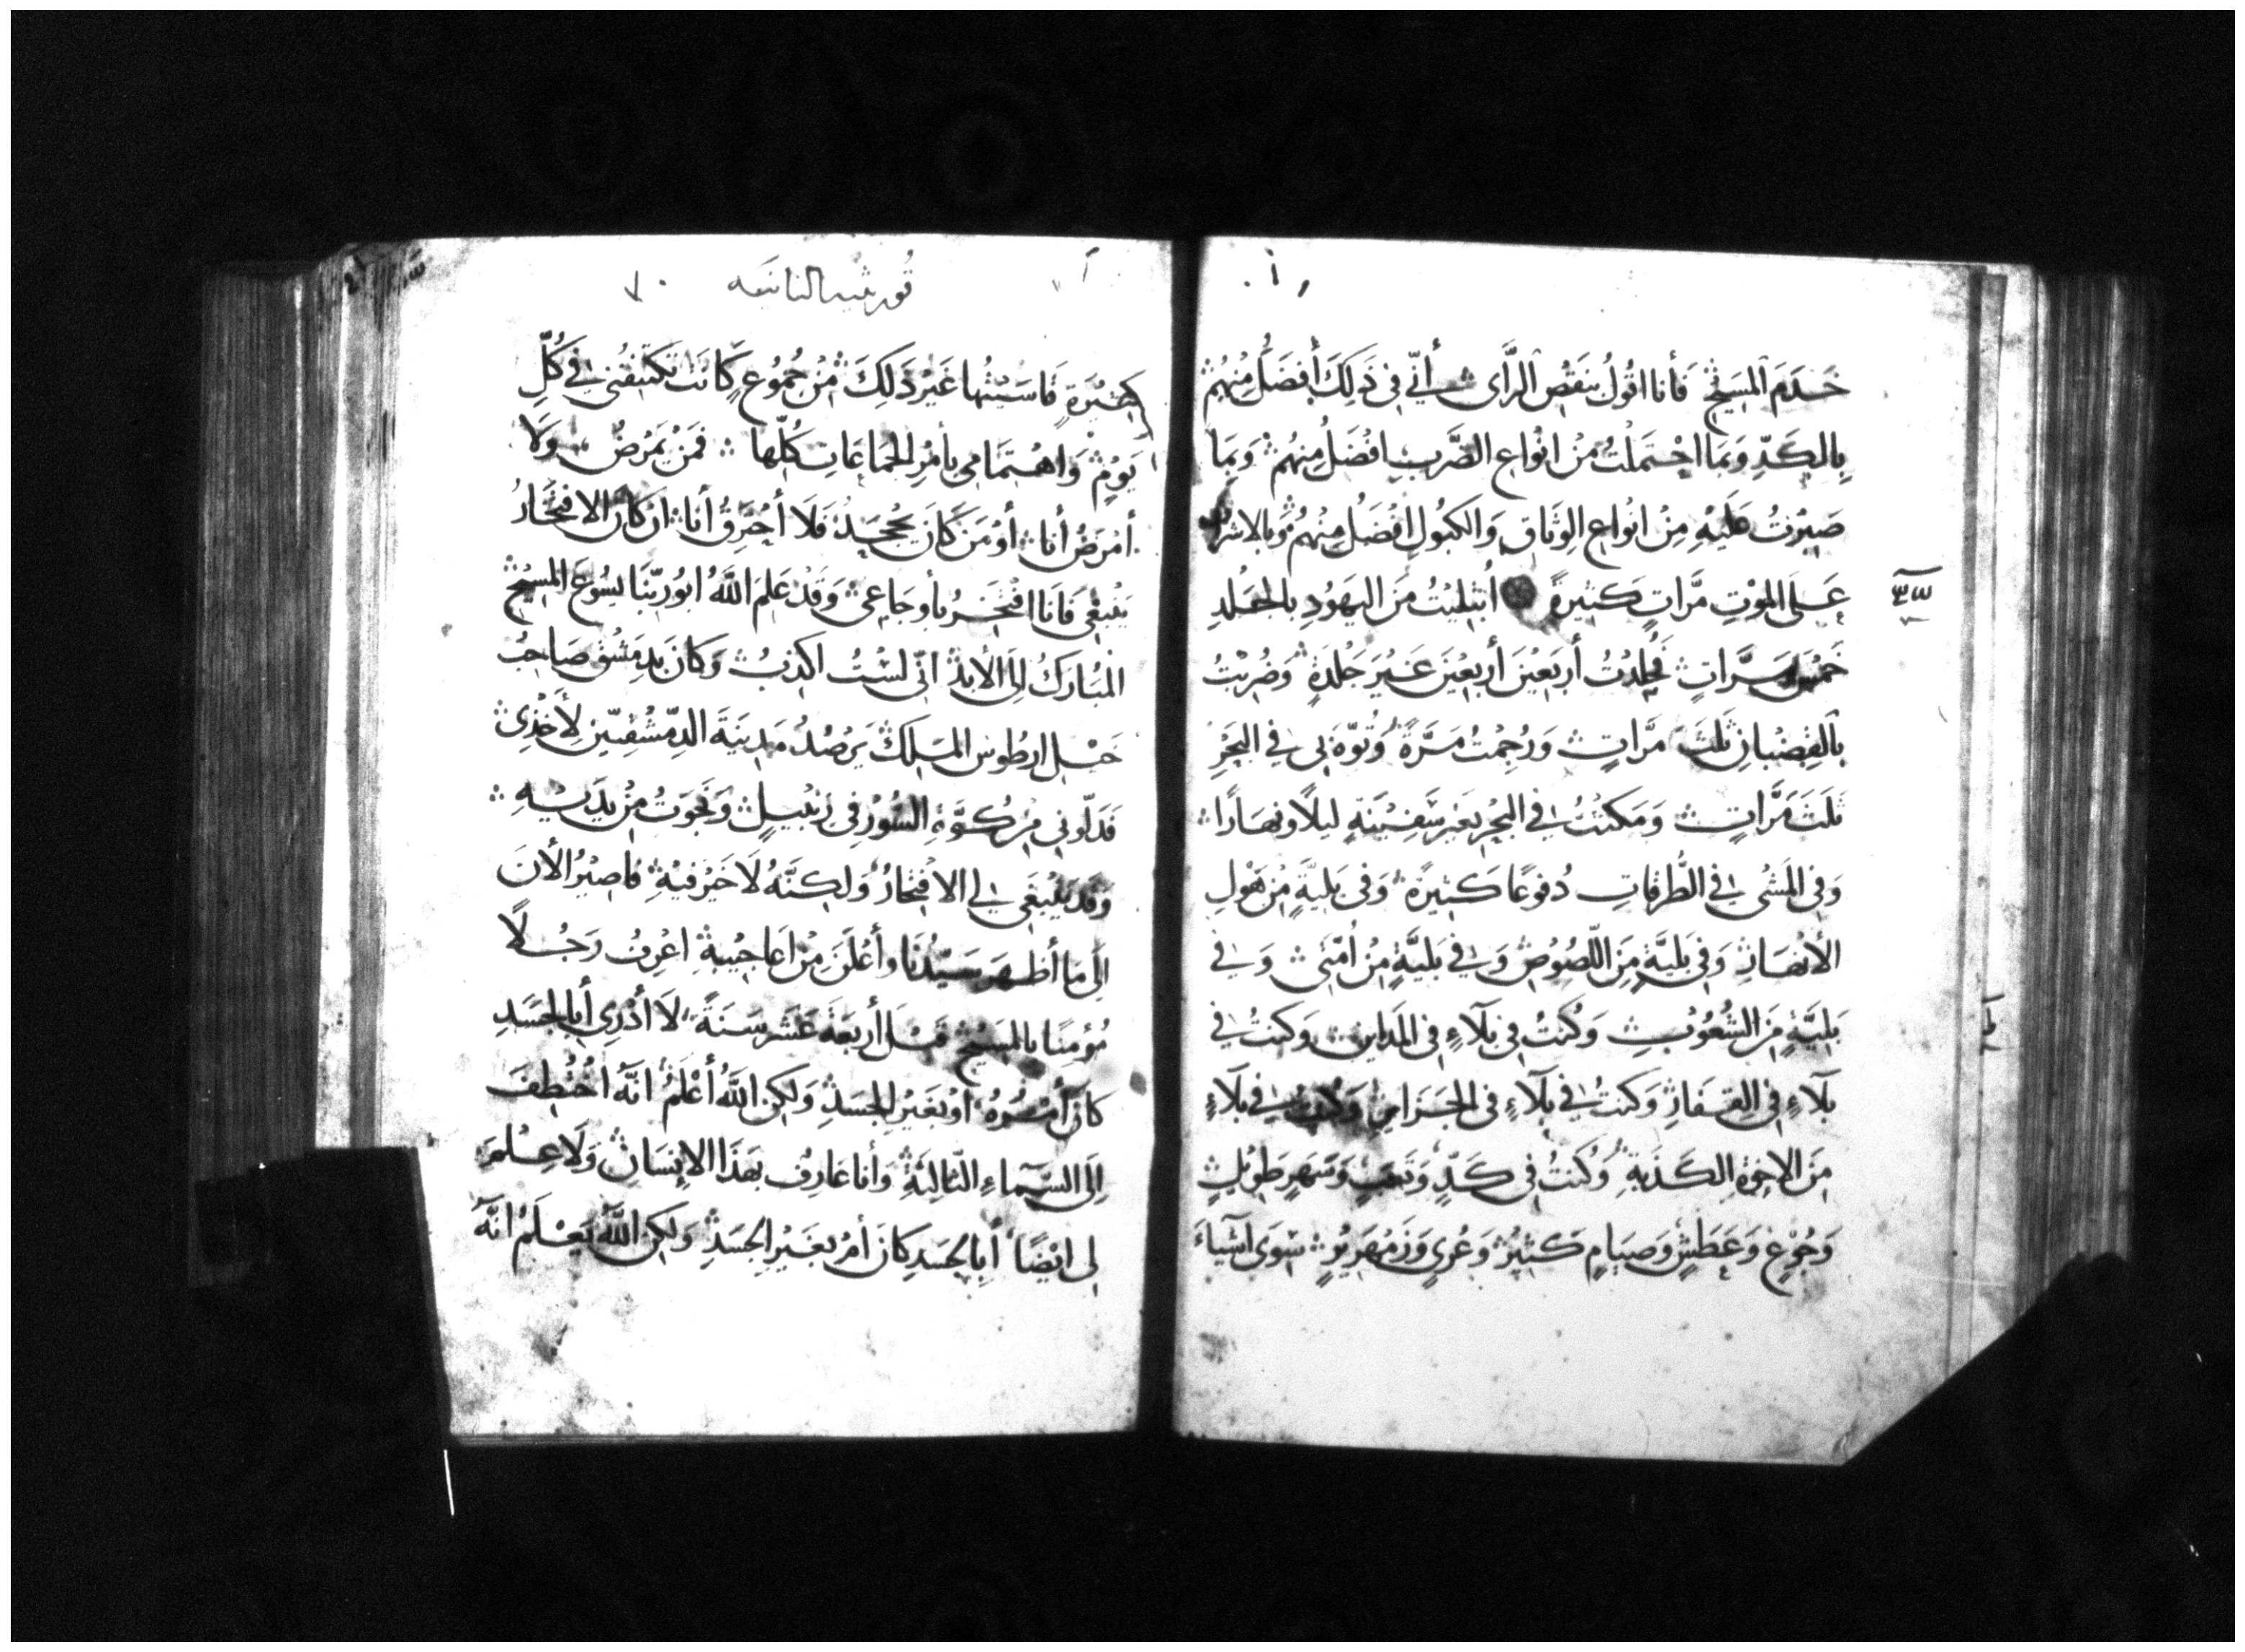 خَدَمَ المَسِيحِ فَأنا اقُولُ بنَقصِ الرَّأى أنّي فى ذَلِكَ أَفضَلُ مِنهُم
بِالكَدِّ وَبمَا احْتمَلْتُ مِنْ انْواعِ الضَّربِ افْضَلُ مِنهُم وَبمَا
صَبِرْتُ عَلَيْهِ مِنْ انواعِ الوِثَاقِ وَالكبُولِ افْضَلُ مِنْهُم وَبالاشرافِ
عَلَى المَوْتِ مَّراتٍ كَثيرةً ابْتلِيْتُ مِنَ اليَهُودِ بالجَلدِ
خَمْسَ مَرَّاتٍ فجُلِدْتُ أَربَعِيْنَ أَربعِيْنَ غَيْرَ جَلْدَةٍ وَضُرِبْتُ
بالقِضْبانِ ثَلثَ مَّراتٍ وَرُجِمْتُ مَرَّةً وَتُوّهَ بى فى البَحْرِ
ثَلَثَ مَرَّاتٍ وَمَكثْتُ فى البَحْرِ بغَيْرِ سَفِيْنَةٍ ليلاً ونهَارًا
وَفى المَشْى فى الطُّرقاتِ دُفوعًا كَثِيرَةً وَفى بَليَّةٍ مِنْ هَوْلِ
الأَنْهَارِ وَفى بَليَّةٍ مِنَ اللّصُوْصِ وَفى بَليَّةٍ مِنْ أُمَّتى وَفى
بَليَّةٍ مِنَ الشُّعُوْبِ وَكُنتُ فى بَلآءٍ فى المَدَاينِ وَكنتُ فى
بَلآءٍ فى القِفَارِ وَكنتُ فى بَلآءٍ فى الجَزَايرِ وَكُنتُ فى بَلآءٍ
مِنَ الاِخوَةِ الكَذَبةِ وَكُنتُ فى كَدٍّ وَتَعَبٍ وَسَهَرٍ طَوِيْلٍ
وَجُوْعٍ وَعَطَشٍ وَصيَامٍ كَثيْرٍ وَعُرىٍ وَزَمْهَرِيْرٍ سِوَى اشيَاءَ
قورنثيه الثانيه
كثِيْرَةٍ قاسَيْتُها غَيْرَ ذَلِكَ مِنْ جُمُوْعٍ كَانَت تكتَنِفُنى فى كُلِّ
يَوْمٍ وَاهْتمَامى بأمْرِ الجَماعَاتِ كُلّها فمَنْ يَمرَضُ وَلَا
أمْرَضُ أنا أوْ مَنْ كَانَ يجحَدُ فَلَا أحْتَرِقُ أنا ان كانَ الافتخَارُ
يَنْبغى فَانا افتَخِرُ بأوجَاعِى وَقَدْ عَلِمَ اللَّهُ ابُو ربّنَا يسُوعَ المَسِيْحِ
المُبَارَكُ الى الأَبدِ انّى لسْتُ اكذِبُ وَكانَ بدِمَشْقَ صَاحِبُ
خَيْلِ ارطُوس المَلِكِ يَرصُدُ مَدِينَةَ الدِّمَشْقيّينِ لأخْذِى
فدَلّونى مِنْ كُوَّةِ السُّوْرِ فى زَنْبيلٍ وَنجَوتُ مِنْ يَدَيْهِ
وَقَد يَنْبغى لى الافتخارُ وَلكِنَّهُ لَا خَيْرَ فيْهِ فاصِيْرُ الأَنَ
الى مَا أظهَرَ سَيّدُنَا وأعْلَنَ مِنْ اعَاجيْبهِ اعْرِفُ رَجُلاً
مُؤْمِنًا بالمَسِيْحِ قَبلَ أربعَةَ عَشَرَ سَنَةً لَا أدْرى أبالجَسَدِ
كانَ أمْرُهُ اوْ بغَيْرِ الجَسَدِ وَلكنَّ اللَّهَ أعْلَمُ انّهُ اخْتُطِفَ
الى السَّماءِ الثّالِثَةِ وَأنا عَارِف بهَذَا الاِنسَانِ وَلَا عِلْمَ
لى ايْضًا أبالجَسَدِ كانَ أمْ بغَيْرِ الجَسَدِ وَلكنَّ اللَّهَ يَعْلَمُ انّهُ